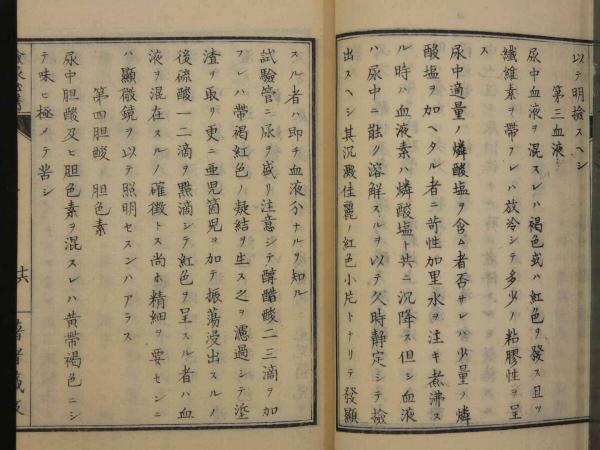 以テ明撿スヘシ
第三血液
尿中血液ヲ混スレハ褐色或ハ紅色ヲ發ス且ツ
纖維素ヲ帶フレハ放冷シテ多少ノ粘膠性ヲ呈
ス
尿中適量ノ燐酸塩ヲ含ム者否サレハ少量ノ燐
酸塩ヲ加ヘタル者ニ苛性加里水ヲ注キ煮沸ス
ル時ハ血液素ハ燐酸塩ト共ニ沉降ス但シ血液
ハ尿中ニ能ク溶解スルヲ以テ久時静定シテ撿
出スヘシ其沉澱佳麗ノ紅色小片トナリテ發顯
スル者ハ即チ血液分ナルヲ知ル
試驗管ニ尿ヲ盛リ注意シテ醇醋酸二三滴ヲ加
フレハ帶褐紅色ノ凝結ヲ生ス之ヲ濾過シテ滓
渣ヲ取リ更ニ亜児箇児ヲ加テ振蕩浸出スルノ
後硫酸一二滴ヲ點滴シテ紅色ヲ呈スル者ハ血
液ヲ混在スルノ確徴トス尚ホ精細ヲ要センニ
ハ顯微鏡ヲ以テ照明セスンハアラス
第四胆酸 胆色素
尿中胆酸及ヒ胆色素ヲ混スレハ黄帶褐色ニシ
テ味ヒ極メテ苦シ
十六
著者蔵版